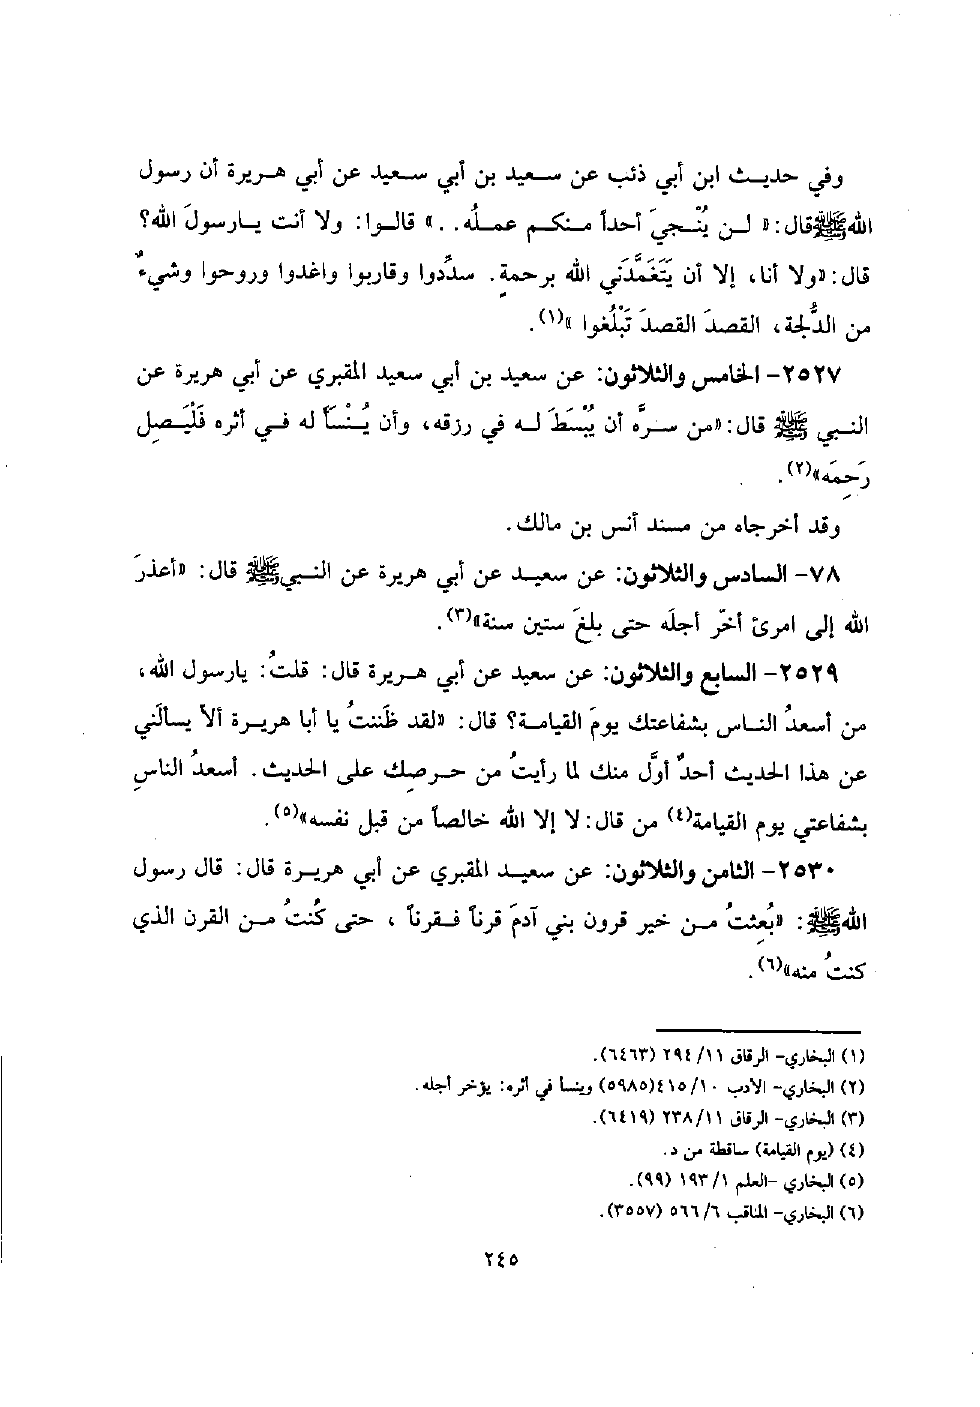 وفي حديث ابن أبي ذئب عن سعيد بن أبي سعيد عن أبي هريرة أن رسول
الله ﷺ قال: « لن يُنْجيَ أحداً منكم عملُه. . » قالوا: ولا أنت يارسولَ الله؟
قال: «ولا أنا، إلا أن يَتَغَمَّدَني الله برحمةٍ. سدِّدوا وقاربوا واغدوا وروحوا وشيءٌ
من الدُّلجة، القصدَ القصدَ تَبْلُغوا »(١).
٢٥٢٧- الخامس والثلاثون: عن سعيد بن أبي سعيد المقبري عن أبي هريرة عن
النبي ﷺ قال: «من سرَّه أن يُبْسَطَ له في رزقه، وأن يُنْسَأ له في أثره فَلْيَصِل
رَحِمَه»(٢).
وقد أخرجاه من مسند أنس بن مالك.
٧٨- السادس والثلاثون: عن سعيد عن أبي هريرة عن النبي ﷺ قال: «أعذرَ
الله إلى امرئ أخّر أجلَه حتى بلغَ ستين سنة»(٣).
٢٥٢٩- السابع والثلاثون: عن سعيد عن أبي هريرة قال: قلتُ: يارسول الله،
من أسعدُ الناس بشفاعتك يومَ القيامة؟ قال: «لقد ظَننتُ يا أبا هريرة ألاّ يسألَني
عن هذا الحديث أحدٌ أوَّل منك لما رأيتُ من حرصِك على الحديث. أسعدُ الناسِ
بشفاعتي يوم القيامة(٤) من قال: لا إلا الله خالصاً من قبل نفسه»(٥).
٢٥٣٠- الثامن والثلاثون: عن سعيد المقبري عن أبي هريرة قال: قال رسول
الله ﷺ: «بُعِثتُ من خير قرون بني آدمَ قرناً فقرناً ، حتى كُنتُ من القرن الذي
كنتُ منه»(٦).
(١) البخاري- الرقاق ١١/ ٢٩٤ (٦٤٦٣).
(٢) البخاري- الأدب ١٠/ ٤١٥(٥٩٨٥) وينسأ في أثره: يؤخر أجله.
(٣) البخاري- الرقاق ١١/ ٢٣٨ (٦٤١٩).
(٤) (يوم القيامة) ساقطة من د.
(٥) البخاري -العلم ١/ ١٩٣ (٩٩).
(٦) البخاري- المناقب ٦/ ٥٦٦ (٣٥٥٧).
٢٤٥